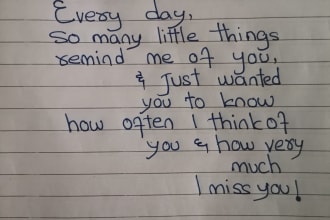 Every day,
So many little things
remind me of you,
& Just wanted
you to know
how often I think of
you & how very
much
I miss you!